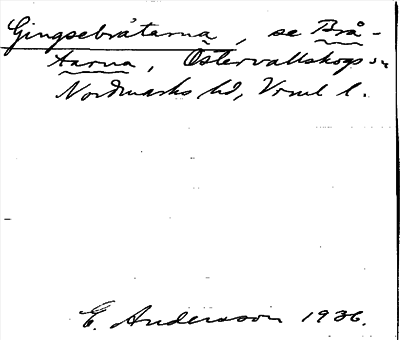 Gingsebråtarna, se Brå-
tarna, Östervallskogs sn
Nordmarks hd, Vrml l.
E. Andersson 1936.